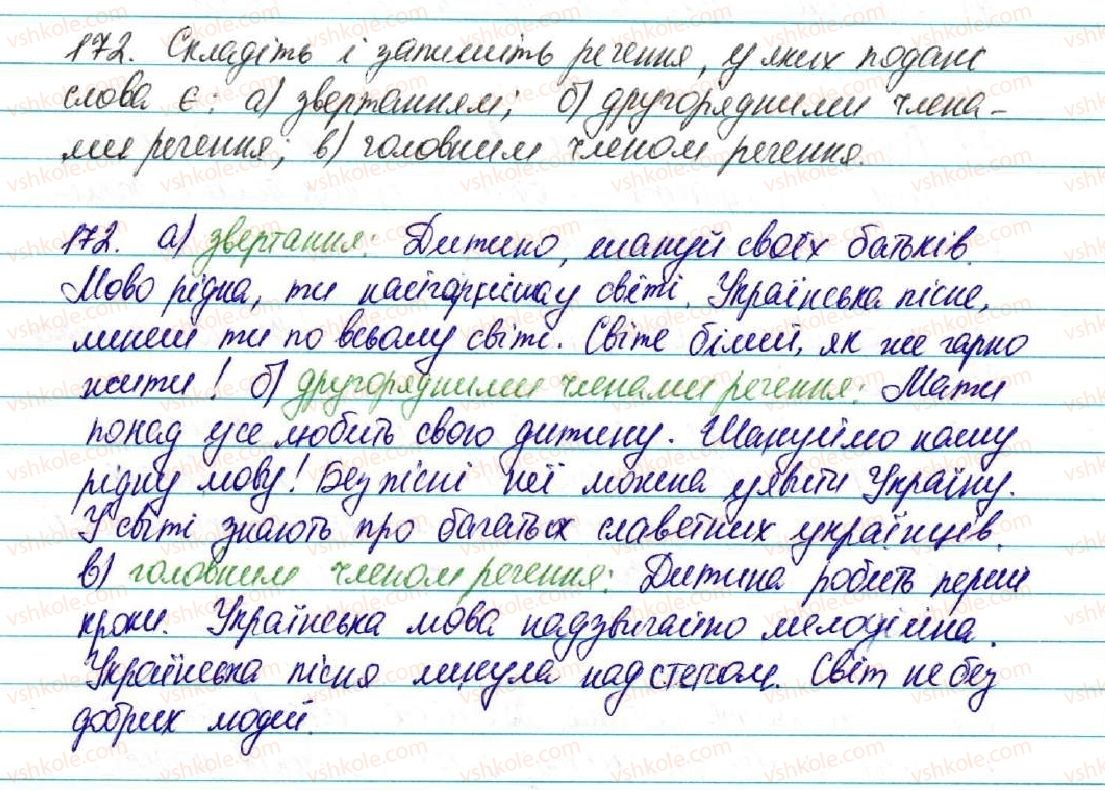 172. Складіть і запишіть речення, у яких подані
слова є: а) звертанням; б) другорядними члена-
ми речення; в) головним членом речення.
172. а) звертання: Дитино, шануй своїх батьків.
Мово рідна, ти найгарніша у світі. Українська пісне,
линеш ти по всьому світі. Світе білий, як же гарно
жити! б) другорядними членами речення: Мати
понад усе любить свою дитину. Шануймо нашу
рідну мову! Без пісні не можна уявити Україну.
У світі знають про багатьох славетних українців.
в) головним членом речення: Дитина робить перші
кроки. Українська мова надзвичайно мелодійна.
Українська пісня линула над степом. Світ не без
добрих людей.